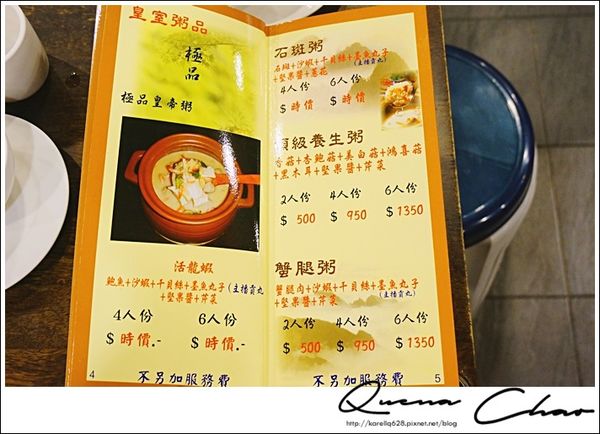 皇室粥品
極品
極品皇帝粥
活龍蝦
鮑魚+沙蝦+干貝絲+墨魚丸子(主播貢丸
+堅果醬+芹菜
4人份 6人份
$ 時價.- $ 時價.-
4 不另加服務費
石斑粥
石斑+沙蝦+干貝絲+墨魚丸子
(主播貢丸)
+堅果醬+蔥花
4人份 6人份
$ 時價 $ 時價
頂級養生粥
香菇+杏鮑菇+美白菇+鴻喜菇
+黑木耳+堅果醬+芹菜
2人份 4人份 6人份
$ 500 $ 950 $ 1350
蟹腿粥
蟹腿肉+沙蝦+干貝絲+墨魚丸子
+堅果醬+芹菜 (主播貢丸)
2人份 4人份 6人份
$ 500 $ 950 $ 1350
不另加服務費 5
Quena Chao
http://karellq628.pixnet.net/blog